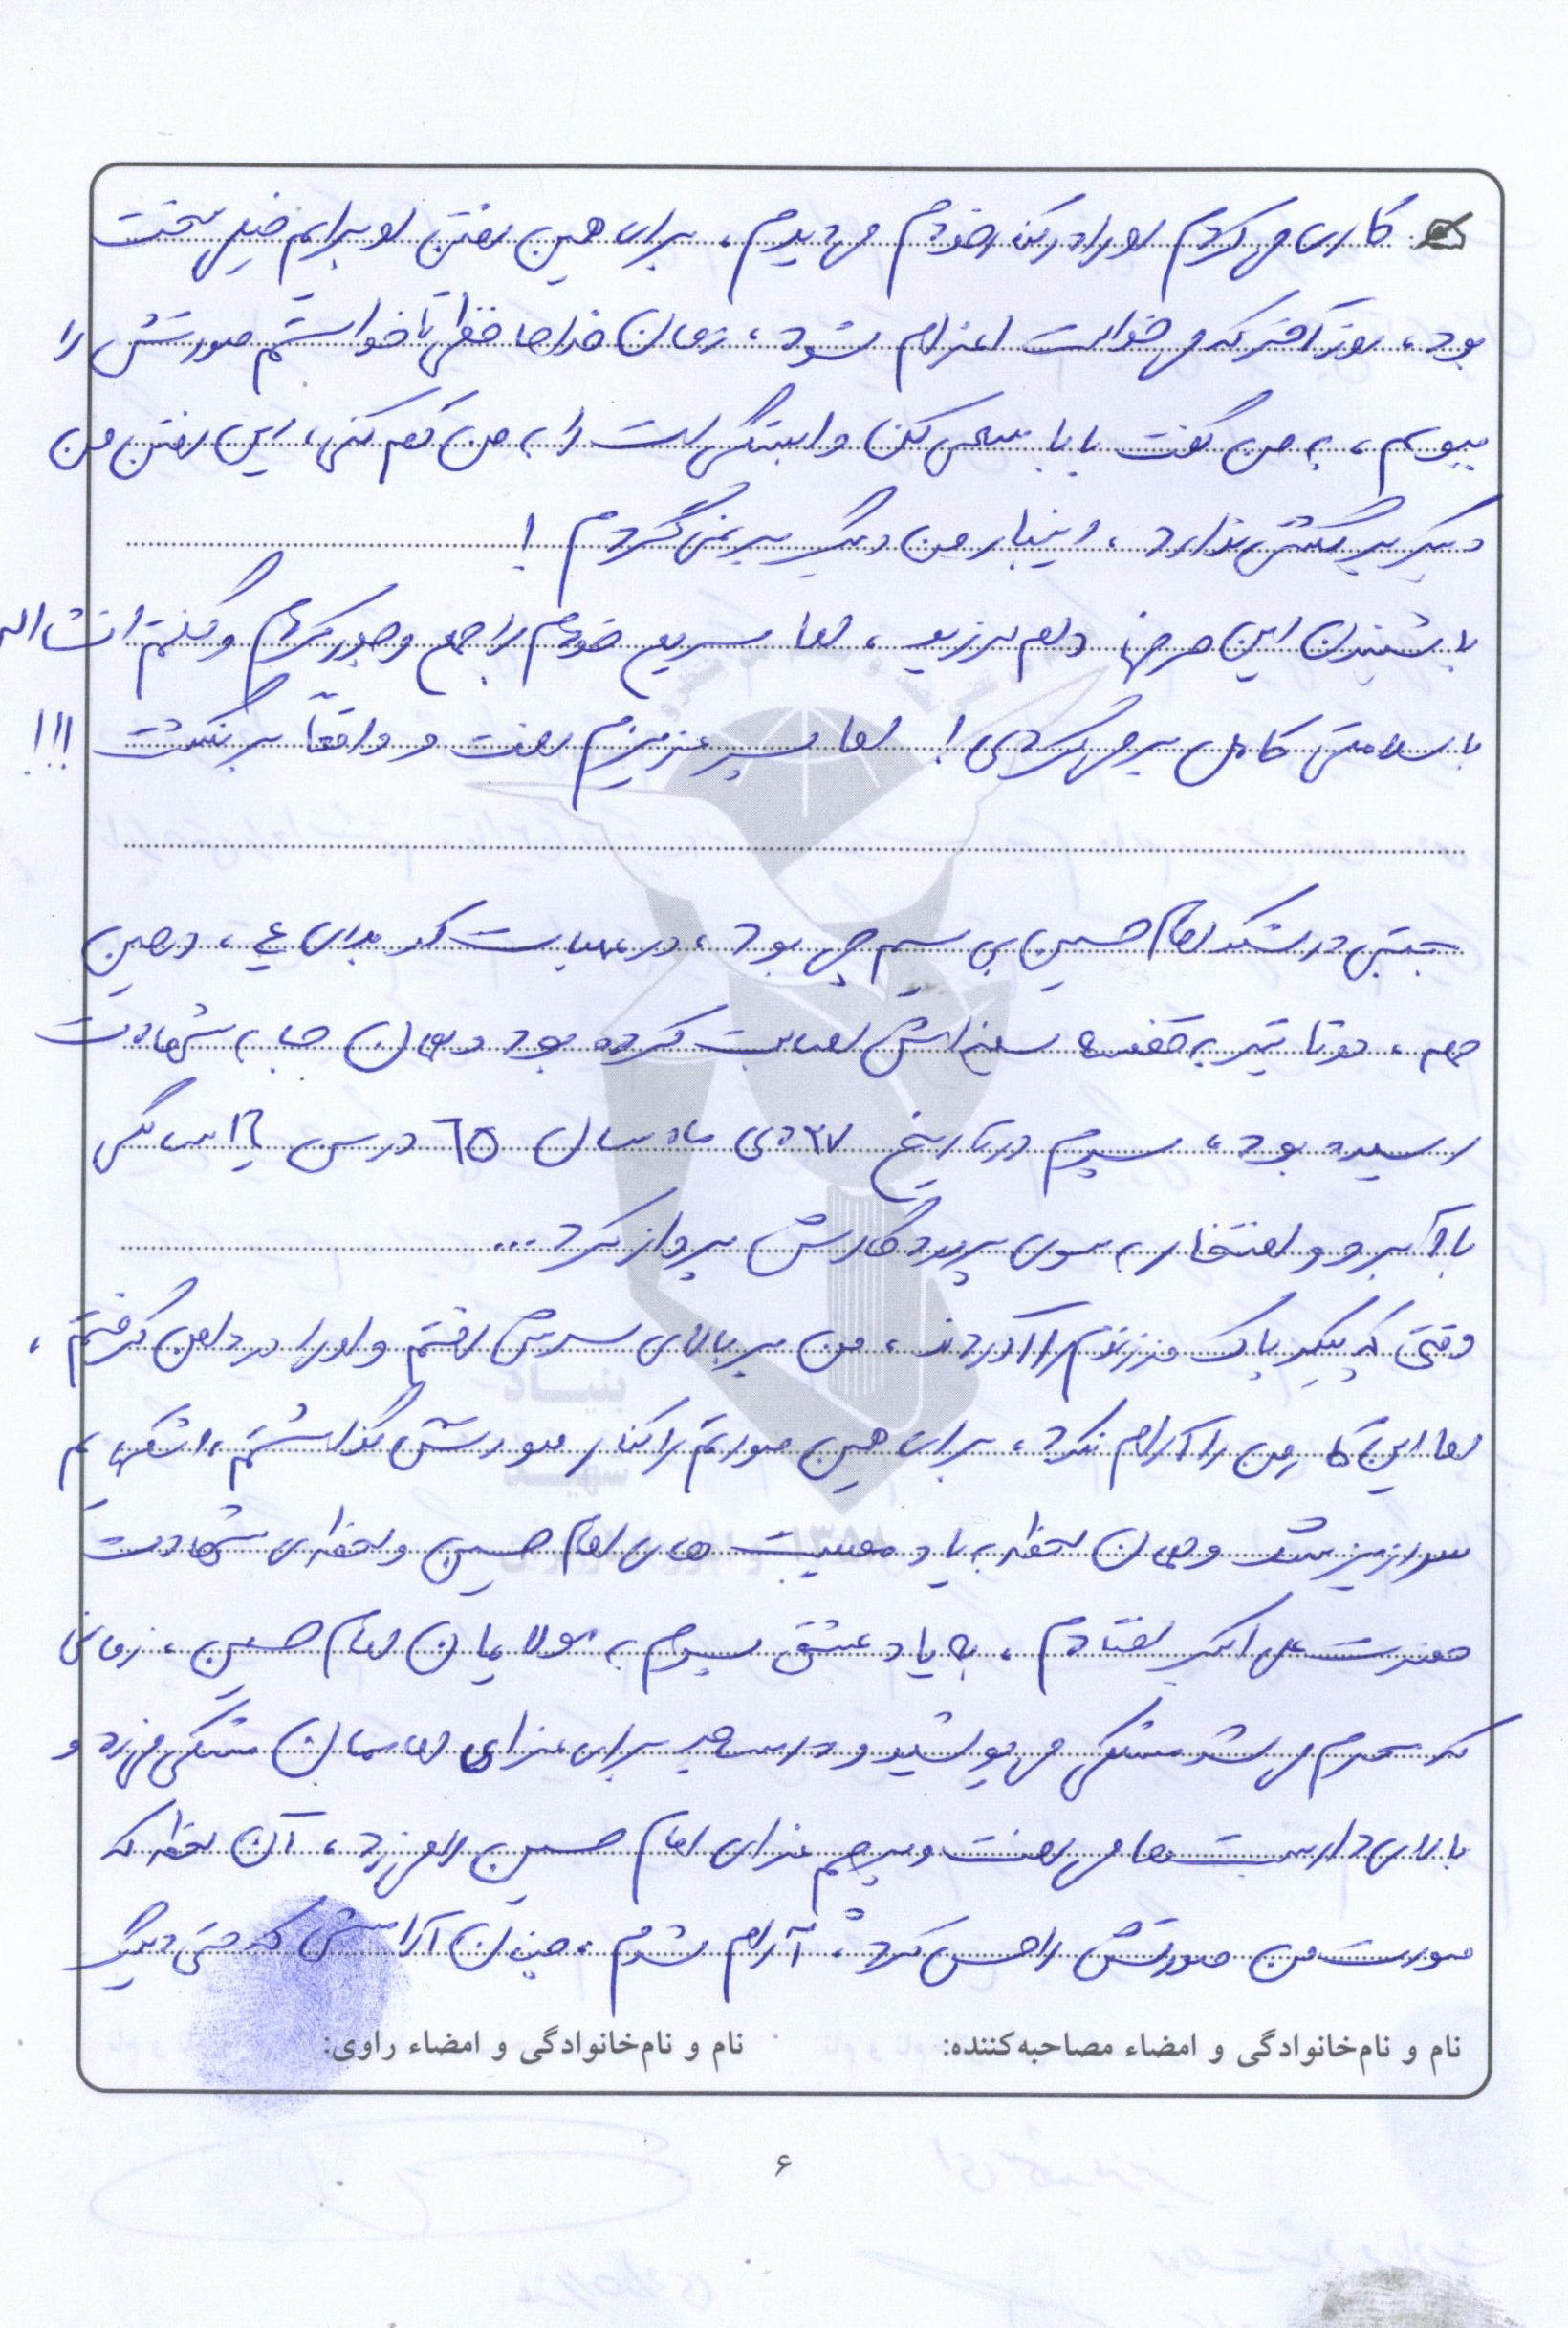 کاری می کردم او را در کنار خودم می دیدم، برای همین رفتن او برایم خیلی سخت
بود، روز آخر که می خواست اعزام شود، زمان خداحافظی تا خواستم صورتش را
ببوسم، به من گفت بابا سعی کن وابستگی ات را به من کم کنی، این رفتن من
دیگر برگشتی ندارد، اینبار من دیگر بر نمی گردم!
با شنیدن این حرفها دلم لرزید، اما سریع خودم را جمع و جور کردم و گفتم انشااله
با سلامتی کامل بر می گردی! اما پسر عزیزم رفت و واقعاً برنگشت!!!
مجتبی در لشکر امام حسین بی سیم چی بود، در عملیات کربلای ۴، در حین
حمله، دو تا تیر به قفسه سینه اش اصابت کرده بود و همان جا به شهادت
رسیده بود، پسرم در تاریخ ۲۷ دی ماه سال ۶۵ در سن سالگی
با آبرو و افتخار به سوی پروردگارش پرواز کرد...
وقتی که پیکر پاک فرزندم را آوردند، من بر بالای سرش رفتم و او را در دامن گرفتم،
اما این کار من را آرام نکرد، برای همین صورتم را کنار صورتش گذاشتم، اشکهایم
سرازیر شد و همان لحظه به یاد مصیبت های امام حسین و لحظه ی شهادت
حضرت علی اکبر افتادم، به یاد عشق پسرم به مولایمان امام حسین، زمانی
که محرم می شد مشکی می پوشید و در مسجد برای عزای امامان مشکی می زد و
بالای داربست ها می رفت و پرچم عزای امام حسین را می زد، آن لحظه که
صورت من صورتش را حس کرد، آرام شدم، چنان آرامشی که حتی دیگر
نام و نام‌خانوادگی و امضاء مصاحبه‌کننده: نام و نام‌خانوادگی و امضاء راوی:
۶